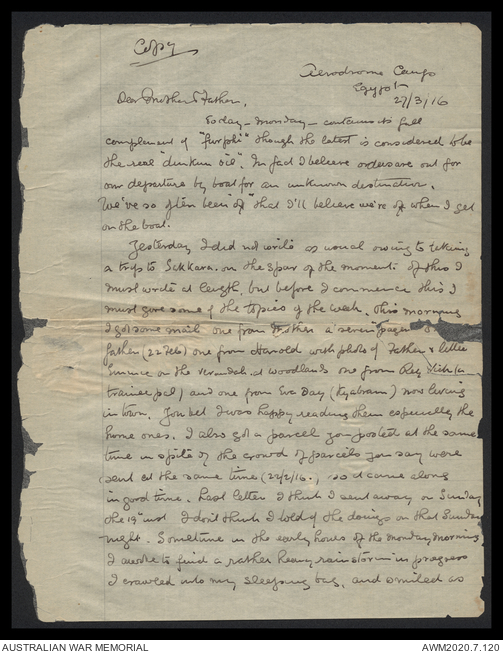 Copy
Aerodrome Camp
Egypt
27/3/16
Dear Mother & Father,
Today - Monday - contains its full
complement of "furphi" though the latest is considered to be
the real "dinkum oil". In fact I believe orders are out for
our departure by boat for an unknown destination.
We've so often been "off" that I'll believe we're off when I get
on the boat.
Yesterday I did not write as usual owing to taking
a trip to Sakkara. on the spur of the moment. Of this I
must write at length but before I commence this I
must give some of the topics of the week. This morning
I got some mail one from Mother a seven pager
Father (22 Feb) one from Harold with photo of Father & little
on the verandah at Woodlands one from Reg
trainer pal) and one from Eva Day (Kyabram) now living
in town. You bet I was happy reading them especially the
home ones. I also got a parcel you posted at the same
time in spite of the crowd of parcels you say were
sent at the same time (22/2/16., so it came along
in good time. Last letter I think I sent away on Sunday
the 19th inst I don't think I told of the doings on that Sunday
night. Sometime in the early hours of the Monday morning
I awoke to find a rather heavy rain storm in progress
I crawled into my sleeping bag, and smiled as
AUSTRALIAN WAR MEMORIAL
AWM2020.7.120